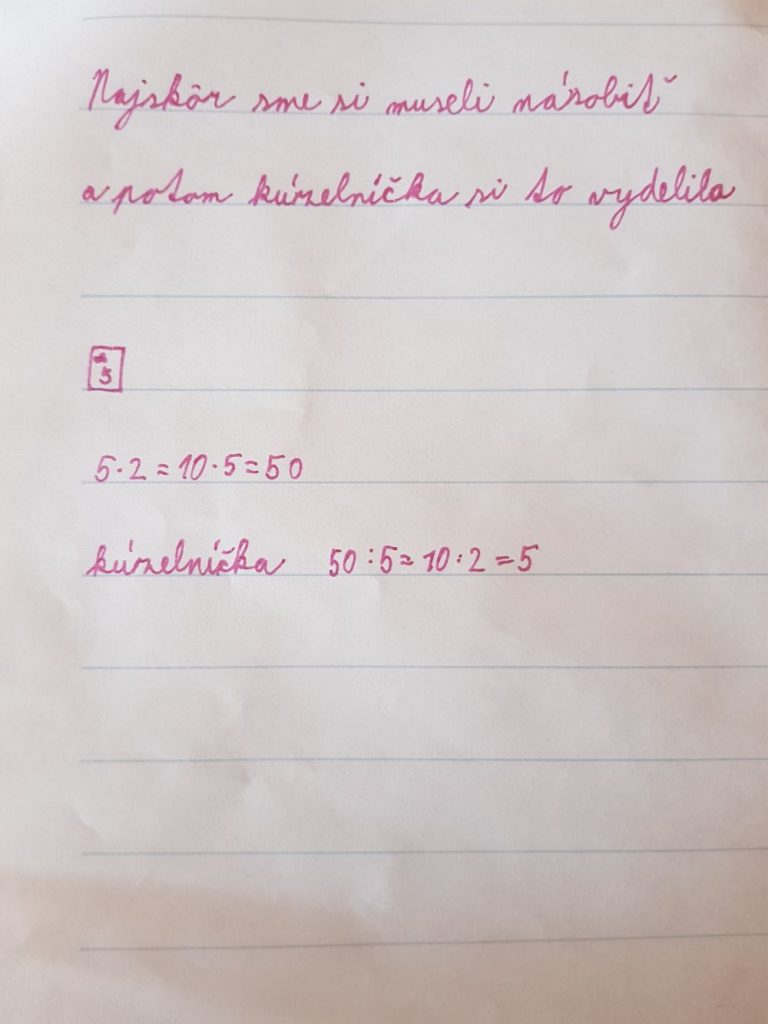 Najskôr sme si museli násobiť
a potom kúzelníčka si to vydelila
5
5·2=10·5=50
kúzelníčka 50:5=10:2=5